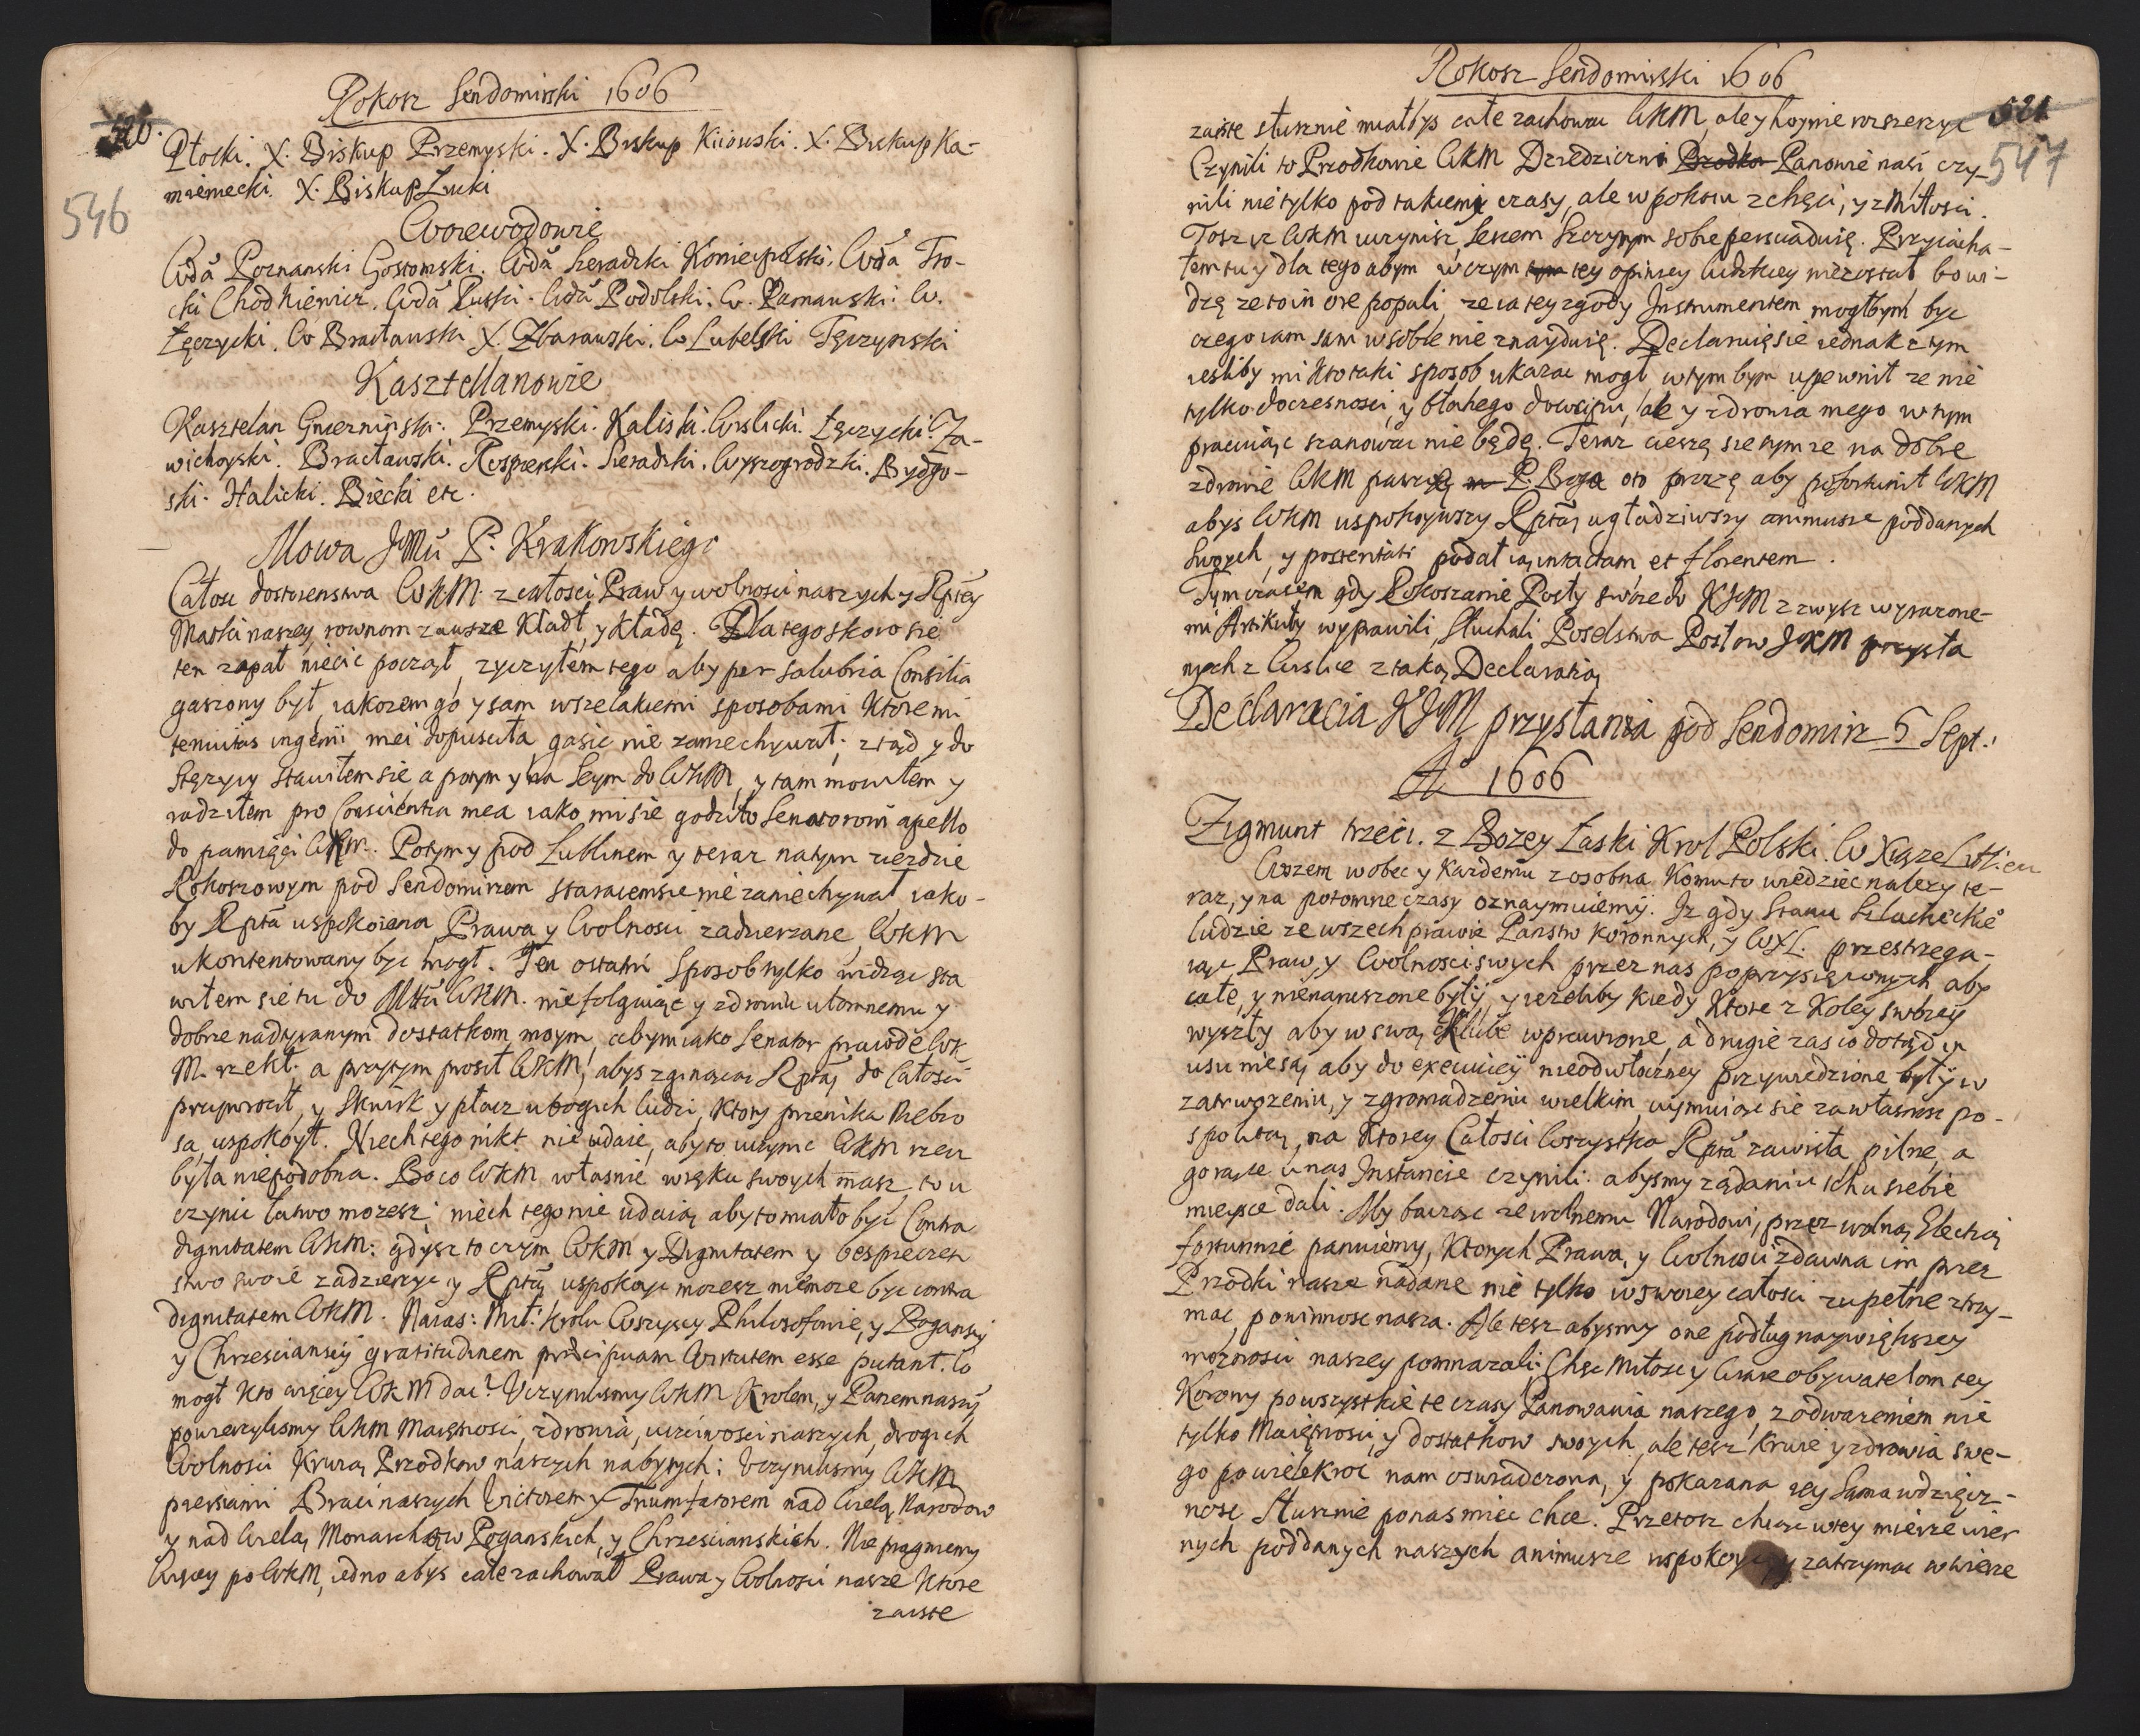 Rokosz Sendomirski 1606
520.
546
Płocki. X. Biskup Przemyski. X. Biskup Kiiowski. X. Biskup Ka-
mieniecki. X. Biskup Łucki
Woiewodowie
Wda Poznanski Gostomski. Wda Sieradzki Koniecpolski. Wda Tro-
cki Chodkiewicz. Wda Ruski. Wda Podolski. W. Parnawski. W.
Łęczycki. W Bracławski X. Zbarawski. W Lubelski Tęczynski
Kasztellanowie
Kasztelan Gniezninski. Przemyski. Kaliski. Wislicki. Łęczycki. Za-
wichoyski. Bracławski. Rosperski. Sieradzki. Wyszogrodzki. Bydgo-
ski. Halicki. Biecki etc.
Mowa JMci P. Krakowskiego
Całosc dostoienstwa WKM. z całosci Praw y wolnosci naszych y Rptey
Matki naszey rownom zawsze kładł, y kładę. Dla tego skoro się
ten zapał niecic począł, zyczyłem tego aby per salubria Consilia
gaszony był, iakozem go y sam wszelakiemi sposobami ktoremi
tenuitas ingenii mei dopusciła, gasic nie zaniechywał; ztąd y do
Stęzycy stawiłem się a potym y na Seym do WKM, y tam mowiłem y
radziłem pro Conscientia mea iako mi się godziło Senatorowi apello
do pamięci WKM. Potym y pod Lublinem y teraz na tym ziezdzie
Rokoszowym pod Sendomirzem staraciem sie nie zaniechywał iako-
by Rpta uspokoiena, Prawa y Wolnosci zadzierzane, WKM
ukontentowany byc mogł. Ten ostatni sposob tylko widząc sta
wiłem się tu do Mtu WKM. nie folguiąc y zdrowiu ułomnemu y
dobrze nadtyranym dostatkom moym, abym iako Senator prawdę WK
M. rzekł. a przytym prosił WKM, abys zginaiącą Rptą do Całosci
przywrocił, y Skwirk y płacz ubogich ludzi, ktory przenika Niebio
sa, uspokoył. Niech tego nikt nie udaie, aby to uczynic WKM rzecz
była niepodobna. Bo co WKM własnie w ręku swoych masz, to u
czynic łatwo mozesz; niech tego nie udaią aby to miało byc Contra
dignitatem WKM: gdysz to czym WKM y Dignitatem y bespieczen
stwo swoie zadzierzyc, y Rptą uspokoyc mozesz nie moze byc contra
dignitatem WKM. Naias: Mił: Krolu Wszyscy Philosofowie, y Poganscy
y Chrzescianscy gratitudinem praecipuam Virtutem esse putant. Co
mogł kto więcey WKM dac? Uczynilismy WKM Krolem, y Panem naszym
powierzylismy WKM Maiętnosci, zdrowia, uczciwosci naszych, drogich
Wolnosci krwią Przodkow naszych nabytych; Uczynilismy WKM
piersiami Braci naszych Victorem y Triumfatorem nad Wielą Narodow
y nad Wielą Monarchow Poganskich, y Chrzescianskich. Nie pragniemy
Więcey po WKM, iedno abys cale zachował Prawa y Wolnosci nasze ktore
zaiste
Rokosz Sendomirski 1606
521
547
zaiste słusznie miałbys cale zachowac WKM, ale y hoynie rozszerzyc
Czynili to Przodkowie WKM Dziedziczni Przodko Panowie nasi czy-
nili nie tylko pod takiemi czasy, ale w pokoiu z chęci, y z Miłosci.
Tosz ze WKM uczynisz, Sercem Szczyrym sobie persuaduię. Przyiacha-
łem tu y dla tego abym w czym tym tey opiniey ludzkiey niezostał, bo wi-
dzę ze to in ore populi, ze ia tey zgody Instrumentem mogłbym byc
czego iam sam w sobie nie znayduię. Declaruię sie iednak z tym
iesliby mi kto taki sposob ukazac mogł, w tym bym upewnił ze nie
tylko doczesnosci, y błahego dowcipu, ale y zdrowia mego w tym
pracuiąc szanowac nie będę. Teraz cieszę się tym ze na dobre
zdrowie WKM patrzę, P. Boga oto proszę aby pofortunił WKM
abys WKM uspokoywszy Rptą, ugładziwszy animusze poddanych
Swoych, y posteritati podał ią intactam, et florentem.
Tym czasem gdy Rokoszanie Posły swoie do KJM z zwysz wyrazone-
mi Artikuły wyprawili, Słuchali Poselstwa Posłow JKM przysła
nych z Wislice z taką Declaratią
Declaracia KJM przysłania pod Sendomirz 5 Sept.
A 1606
Zigmunt trzeci. z Bozey Łaski Krol Polski. W Xiąze Litt: etc
Wszem wobec y kazdemu zosobna, komu to wiedziec nalezy te-
raz, y na potomne czasy oznaymuiemy. Iz gdy Stanu Szlacheckie
ludzie ze wszech prawie Panstw koronnych, y WXL. przestrzega-
iąc Praw, y Wolnosci swych przez nas poprzysięzonych aby
całe, y nienaruszone były, y iezeliby kiedy ktore z koley swoiey
wyszły aby w swą klubę wprawione, a drugie zas co dotąd in
usu niesą, aby do execuciey nieodwłoczney przywiedzione były w
zatrwozeniu, y zgromadzeniu wielkim, uymuiąc sie za własnosc po-
spolitą, na ktorey Całosci Wszystka Rpta zawisła pilne, a
gorące u nas Instancie czynili. abysmy ządaniu ich u siebie
mieysce dali. My bacząc ze wolnemu Narodowi, przez wolną Electią
fortunnie panuiemy, ktorych Prawa, y Wolnosci zdawna im przez
Przodki nasze nadane nie tylko w swoiey całosci zupełne ztrzy-
mac, powinnosc nasza. Ale tesz abysmy one podług naywiększey
moznosci naszey pomnazali. Chęc Miłosc y Wiare obywatelom tey
Korony po wszystkie te czasy Panowania naszego, z odwazeniem nie
tylko Maiętnosci, y dostatkow swoych, ale tesz krwie y zdrowia swe-
go powielekroc nam oswiadczona, y pokazana iey Sama wdzięcz-
nosc Słusznie po nas miec chce. Przetosz chcąc w tey mierze wier
nych poddanych naszych animusze uspokoyc, y zatrzymac w wierze